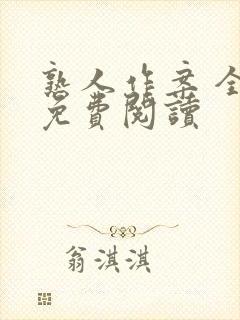 熟人作案全
免費閱讀
翁淇淇